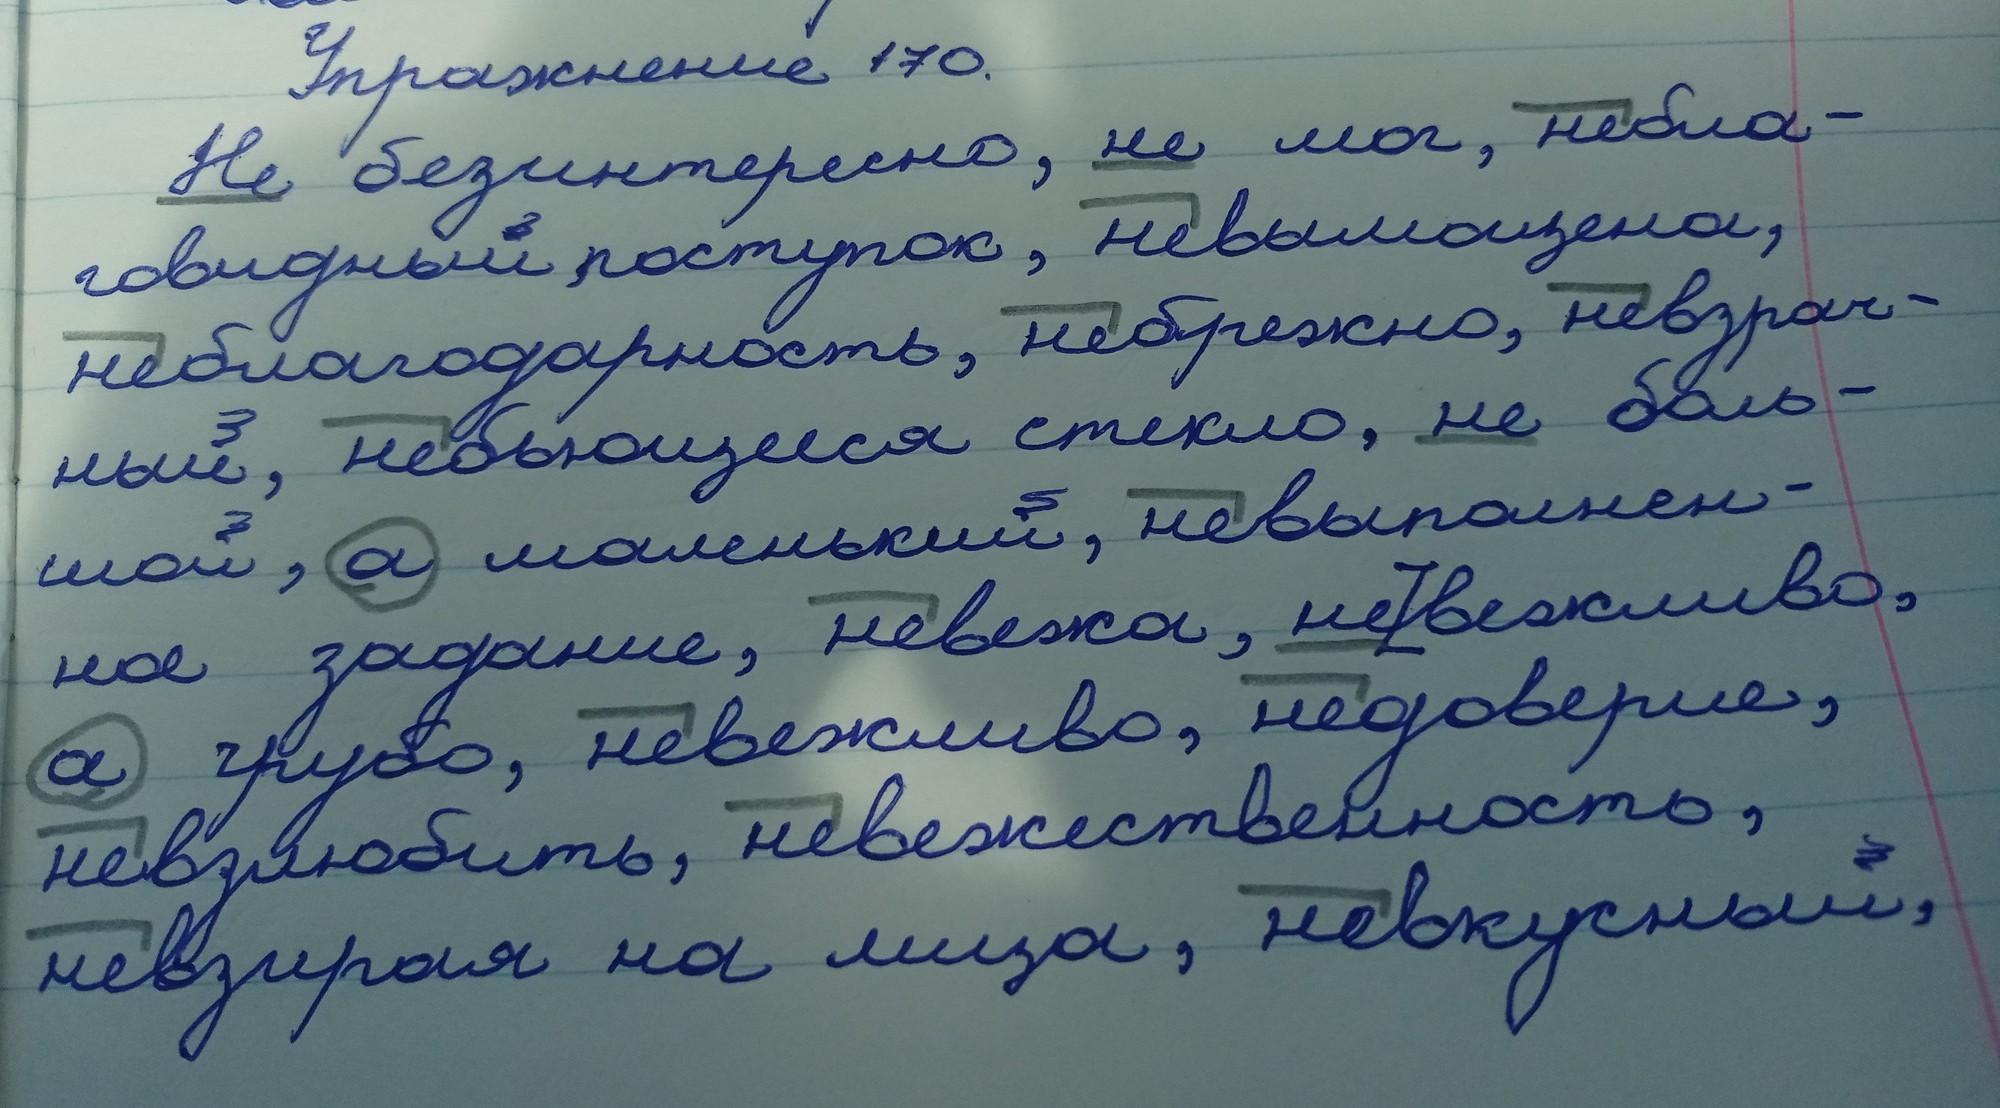 Упражнение 170.
Не безинтересно, не мог, небла-
говидный поступок, невымощена,
неблагодарность, небрежно, невзрач-
ный, небьющееся стекло, не боль-
шой, а маленький, невыполнен-
ное задание, невежа, не вежливо,
а грубо, невежливо, недоверие,
невзлюбить, невежественность,
невзирая на лица, невкусный,